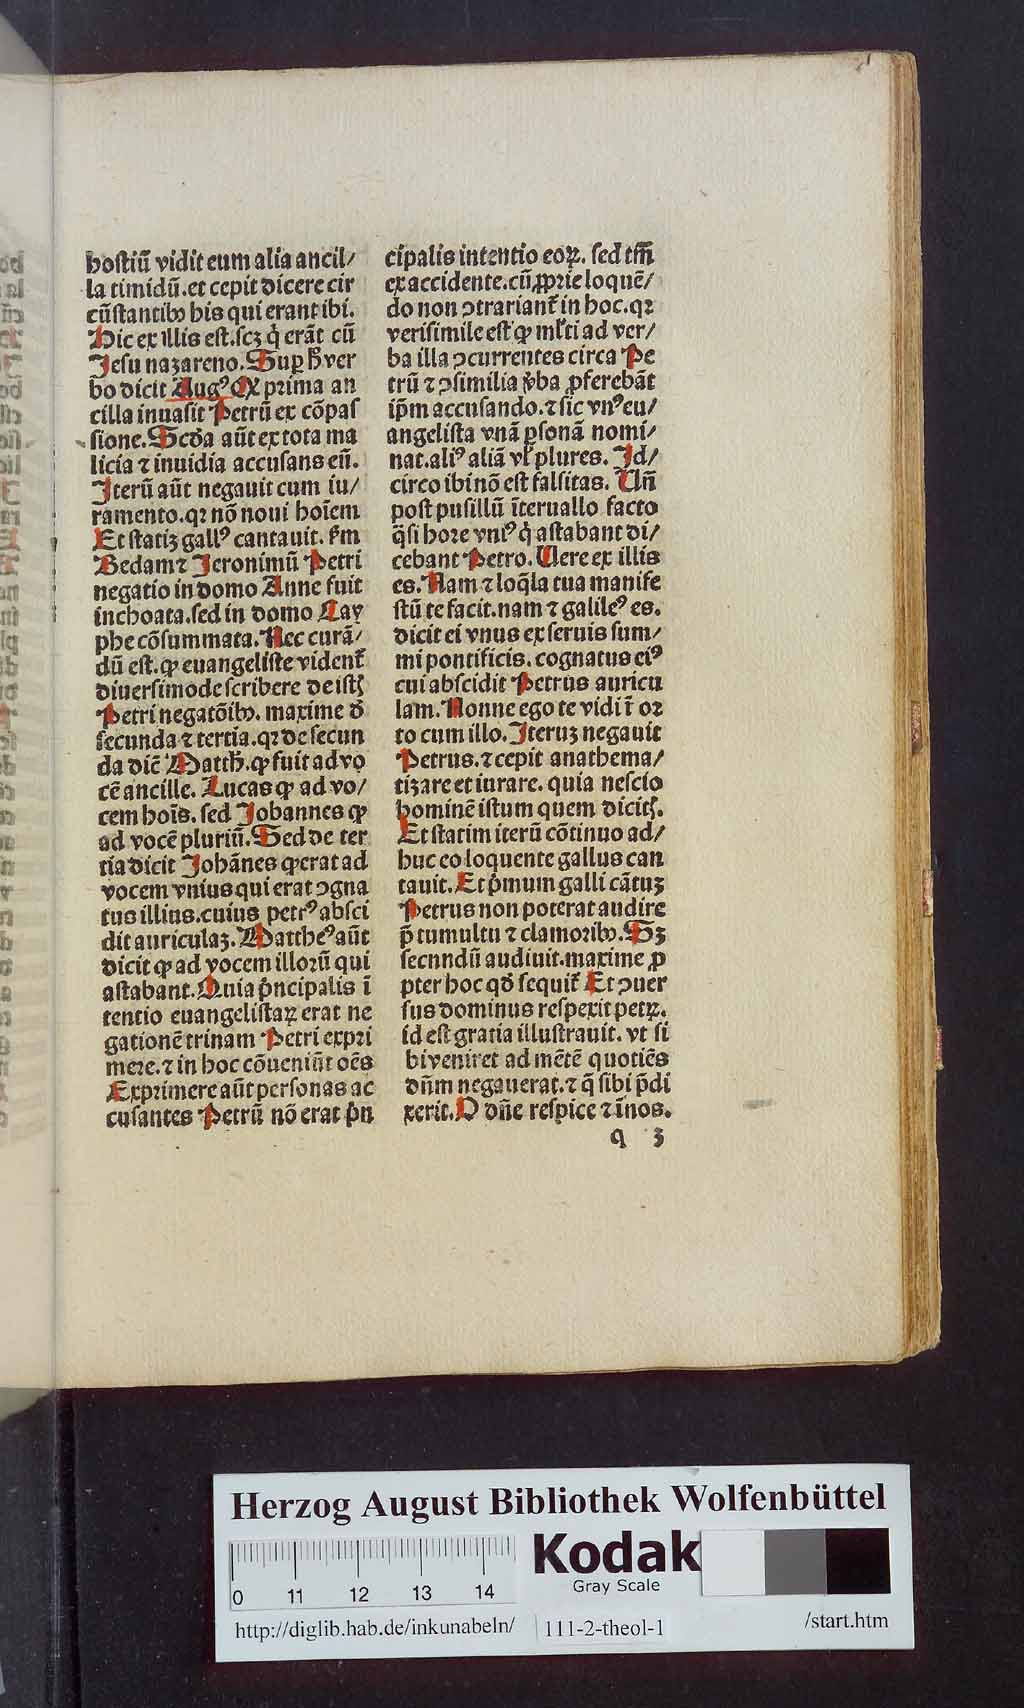 hostiū vidit eum alia ancil/
la timidū. et cepit dicere cir
cūstantibꝰ his qui erant ibi.
Hic ex illis est. scꝫ q̇ erāt cū
Jesu nazareno. Suꝑ hͦ ver
bo dicit Augꝰ Qꝫ prima an
cilla inuasit Petrū ex cōpas
sione. Scďa aūt ex tota ma
licia ⁊ inuidia accusans eū.
Jterū aūt negauit cum iu/
ramento. qꝛ nō noui hoīem
Et statiꝫ gallꝰ cantauit. Fm
Bedam ⁊ Jeronimū Petri
negatio in domo Anne fuit
inchoata. sed in domo Cay
phe cōsummata. Nec curā/
dū est. ꝙ euangeliste vident̃
diuersimode scribere de istꝭ
Petri negatōibꝰ. maxime ď
secunda ⁊ tertia. qꝛ de secun
da dič Matth̄. ꝙ fuit ad vo
cē ancille. Lucas ꝙ ad vo/
cem hoīs. sed Johannes ꝙ
ad vocē pluriū. Sed de ter
tia dicit Johānes ꝙ erat ad
vocem vnius qui erat ↄgna
tus illius. cuius petrꝰ absci
dit auriculaꝫ. Mattheꝰ aūt
dicit ꝙ ad vocem illorū qui
astabant. Quia p̄ncipalis ī
tentio euangelistaꝝ erat ne
gationē trinam Petri expri
mere. ⁊ in hoc cōueniūt oēs
Exprimere aūt personas ac
cusantes Petrū nō erat p̄n
cipalis intentio eoꝝ. sed tm̄
ex accidente. cū ꝓprie loquē/
do non ↄtrariant̃ in hoc. qꝛ
verisimile est ꝙ ml̓ti ad ver/
ba illa ↄcurrentes circa Pe
trū ⁊ ↄsimilia v̓ba ꝓferebāt
ip̄m accusando. ⁊ sic vnꝰ eu/
angelista vnā ꝑsonā nomi/
nat. aliꝰ aliā vl̓ plures. Jd/
circo ibi nō est falsitas. Un̄
post pusillū īteruallo facto
q̄si hore vniꝰ q̇ astabant di/
cebant Petro. Uere ex illis
es. Nam ⁊ loq̄la tua manife
stū te facit. nam ⁊ galileꝰ es.
dicit ei vnus ex seruis sum/
mi pontificis. cognatus eiꝰ
cui abscidit Petrus auricu
lam. Nonne ego te vidi ī or
to cum illo. Jteruꝫ negauit
Petrus. ⁊ cepit anathema/
tizare et iurare. quia nescio
hominē istum quem dicitꝭ.
Et statim iterū cōtinuo ad/
huc eo loquente gallus can
tauit. Et p̓mum galli cātuꝫ
Petrus non poterat audire
p̄ tumultu ⁊ clamoribꝰ. Sꝫ
secnndū audiuit. maxime ꝓ
pter hoc qď sequit̃ Et ↄuer
sus dominus respexit petꝝ.
id est gratia illustrauit. vt si
bi veniret ad mētē quotiēs
dn̄m negauerat. ⁊ q̄ sibi p̄di
xerit. O dn̄e respice ⁊ ī nos.
q 3
Herzog August Bibliothek Wolfenbüttel
Kodak
Gray Scale
0 11 12 13 14
http://diglib.hab.de/inkunabeln/ 111-2-theol-1 /start.htm